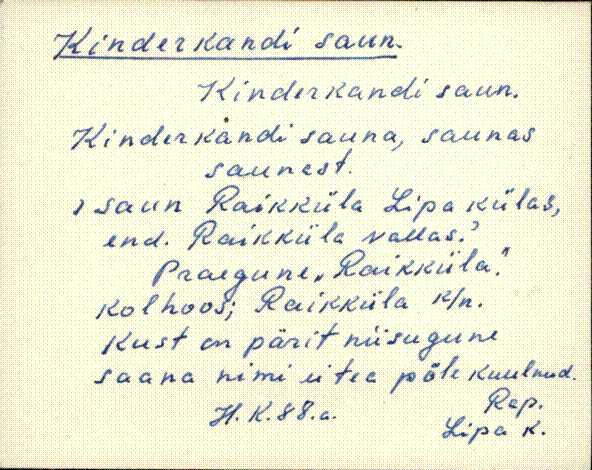 Kinderkandi saun.
Kinderkandi saun.
Kinderkandi sauna, saunas
saunast.
, saun Raikküla Lipa külas,
end. Raikküla vallas.'
Praegune „Raikküla".
Kolhoos; Raikküla k/n.
Kust on pärit niisugune
saana nimi ei tea pole kuulnud.
H. K. 88. a.
Rap.
Lipa k.